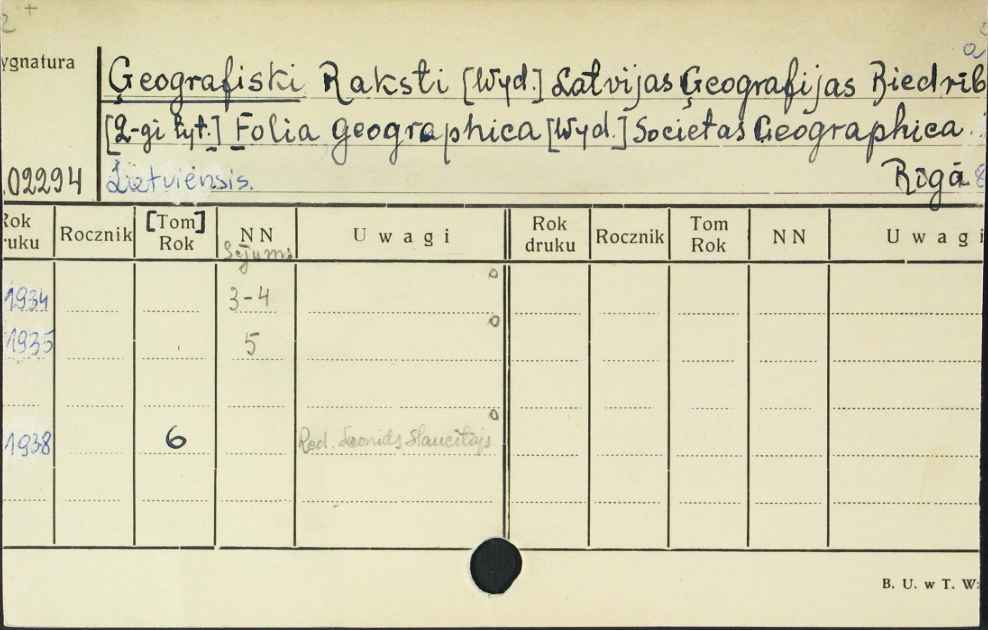 ygnatura
Ģeografiski Raksti [Wyd.] Latvijas Ģeografijas Biedrib
[2-gi tyt.] Folia geographica [Wyd.] Societas Geographica
.02294
Rīgā
Rok ruku Rocznik [Tom] Rok NN Uwagi Rok druku Rocznik Tom Rok NN Uwagi
Sējums
1934 3-4
1935 5
1938 6 Red. Leonids Slaucītajs
B. U. w T. W: